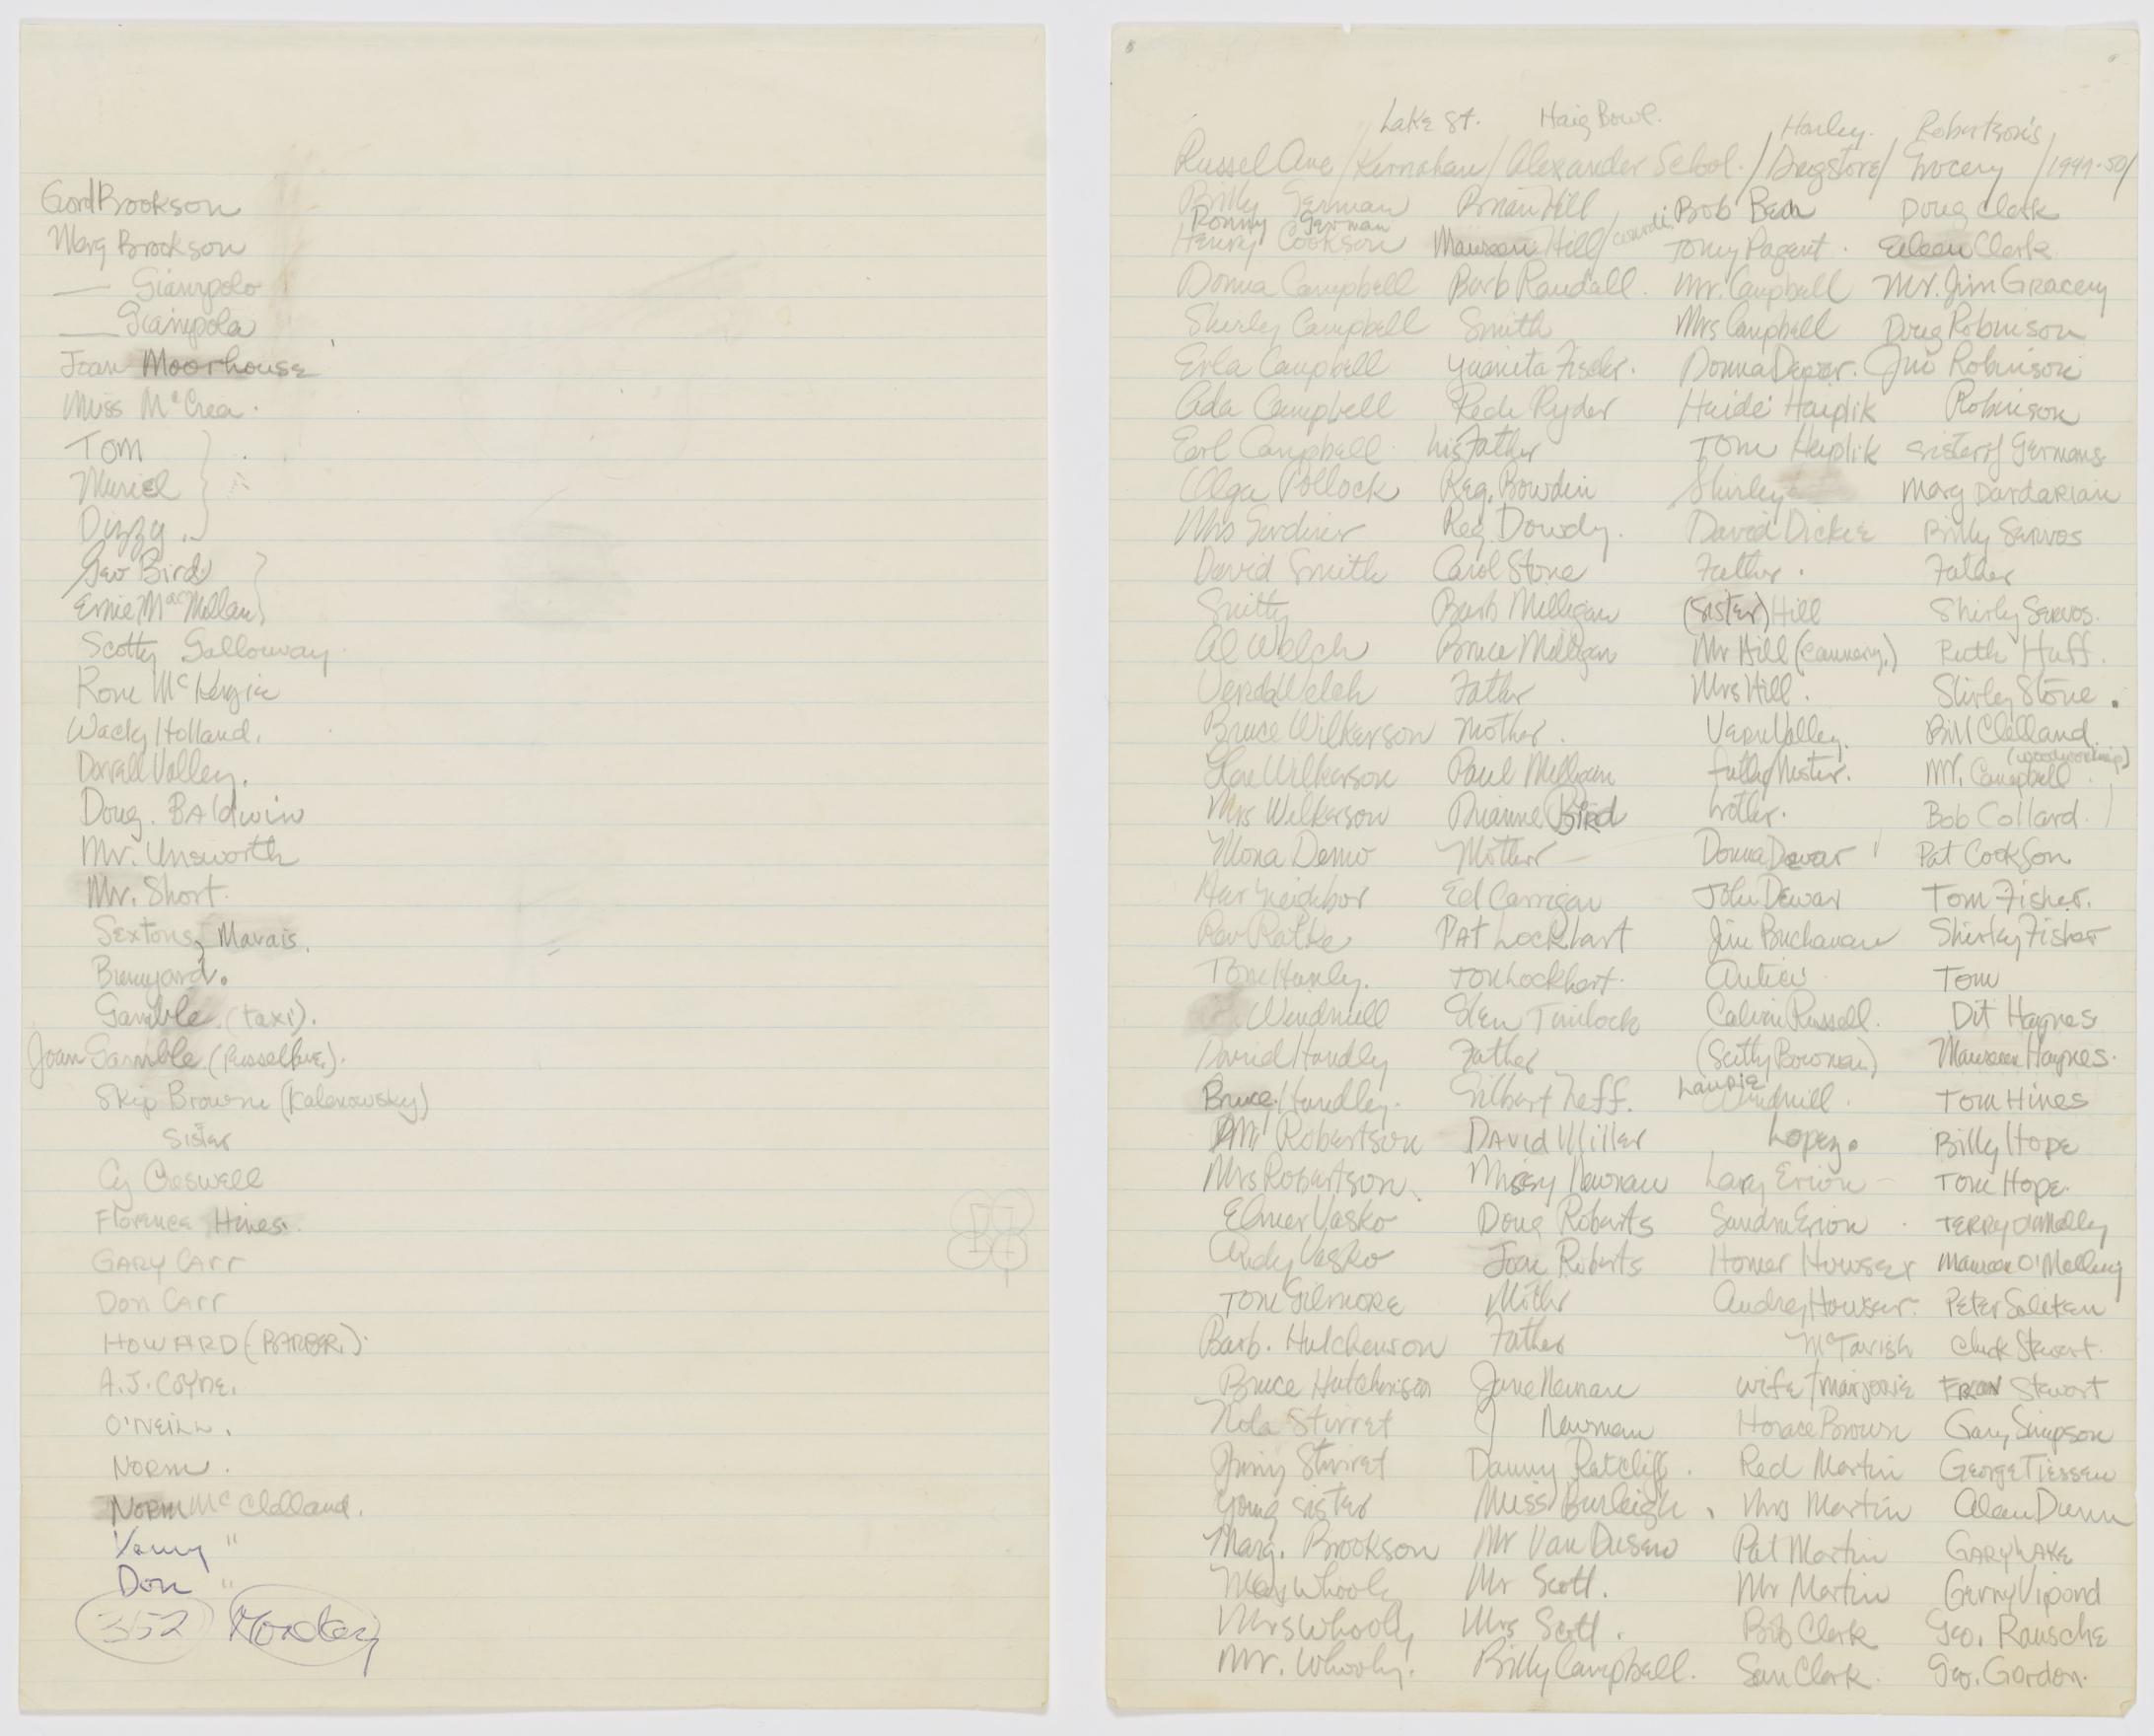 Gord Brookson
Marg Brookson
— Giampolo
— Giampola
Joan Moorhouse
Miss McCrea.
Tom
Muriel
Dizzy.
Geo Bird
Ernie MacMillan
Scotty Galloway
Ron McKenzie
Wacky Holland.
Darrall Valley.
Doug. BAldwin
Mr. Unsworth
Mr. Short.
Sextons, Marais.
Bunyard.
Gamble. (taxi).
Joan Gamble (Russell Ave.).
Skip Browne (Kalenowsky)
Sister
Cy Creswell
Florence Hines.
GARY CArr
Don CArr
HOWARD (BARBER).
A.J. COYNE.
O'NEILL.
NORM.
NORM McClelland.
"
Don "
352 Monday
Lake St. Haig Bowl. Harley. Robertson's
Russel Ave / Kernahan / Alexander School. / Drugstore / Grocery / 1949-50 /
Billy German Brian Hill Bob Bean Doug Clark
Ronny German
Henry Cookson Maureen Hill / Tony Pagent. Eileen Clark
Donna Campbell Barb Randall. Mr. Campbell Mr. Jim Gracery
Shirly Campbell Smith Mrs Campbell Doug Robinson
Erla Campbell Yuanita Fisher. Donna Dewar. Jim Robinson
Ada Campbell Rede Ryder Haidé Haiplik Robinson
Earl Campbell. his Father Tom Haiplik sister of Germans
Olga Pollock Reg. Bowdin Shirley Marg Dardarian
Mrs Reg Dowdy. David Dickie Billy Servos
David Smith Carol Stone Father. Father
Smitty Barb Milligan (sister) Hill Shirly Servos.
Al Welch Bruce Milligan Mr Hill (cannery.) Ruth Huff.
Verda Welch Father Mrs Hill. Shirley Stone.
Bruce Wilkerson Mother. Vern Valley. Bill Clelland.
Wilkerson Paul Milligan Mr. Campbell. (woodworking)
Mrs Wilkerson Dianne Bird Bob Collard.
Mona Demo Mother — Donna Dewar Pat Cookson
Her Neighbor Ed Carrigan John Dewar Tom Fisher.
Rev Ratke PAT Lockhart Jim Buchanan Shirley Fisher
Tom Hanly. Tom Lockhart. Tom
Windmill Glen Calvin Russell. Dit Haynes
David Handly Father (Scitty Bowman) Maureen Haynes.
Bruce Handley. Gilbert Neff. Laurie Windmill. Tom Hines
Mr Robertson DAVID Miller Lopez. Billy Hope
Mrs Robertson. Missy Newman Lary Erion — Tom Hope.
Elmer Vasko Doug Roberts Sandra Erion. TERRY O'Malley
Andy Vasko Joan Roberts Homer Howser Maureen O'Malley
Tom Gilmore Mother Audrey Howser. Peter Saliken
Barb. Hutchenson Father McTavish Chuck Stewart.
Bruce Hutchinson Jane Newman wife / marjorie Fran Stewart
Nola Stirret J Newman Horace Brown Gary Simpson
Stirret Danny Ratcliff. Red Martin George Tiessen
young sister Miss Burleigh. Mrs Martin Alean Dunn
Marg. Brookson Mr Van Dusen Pat Martin GARY LAKE
Whooly Mr Scott. Mr Martin Gerry Vipond
Mrs Whooly Mrs Scott. Bob Clark Geo. Rausche
Mr. Whooly. Billy Campbell. Sam Clark. Geo. Gordon.